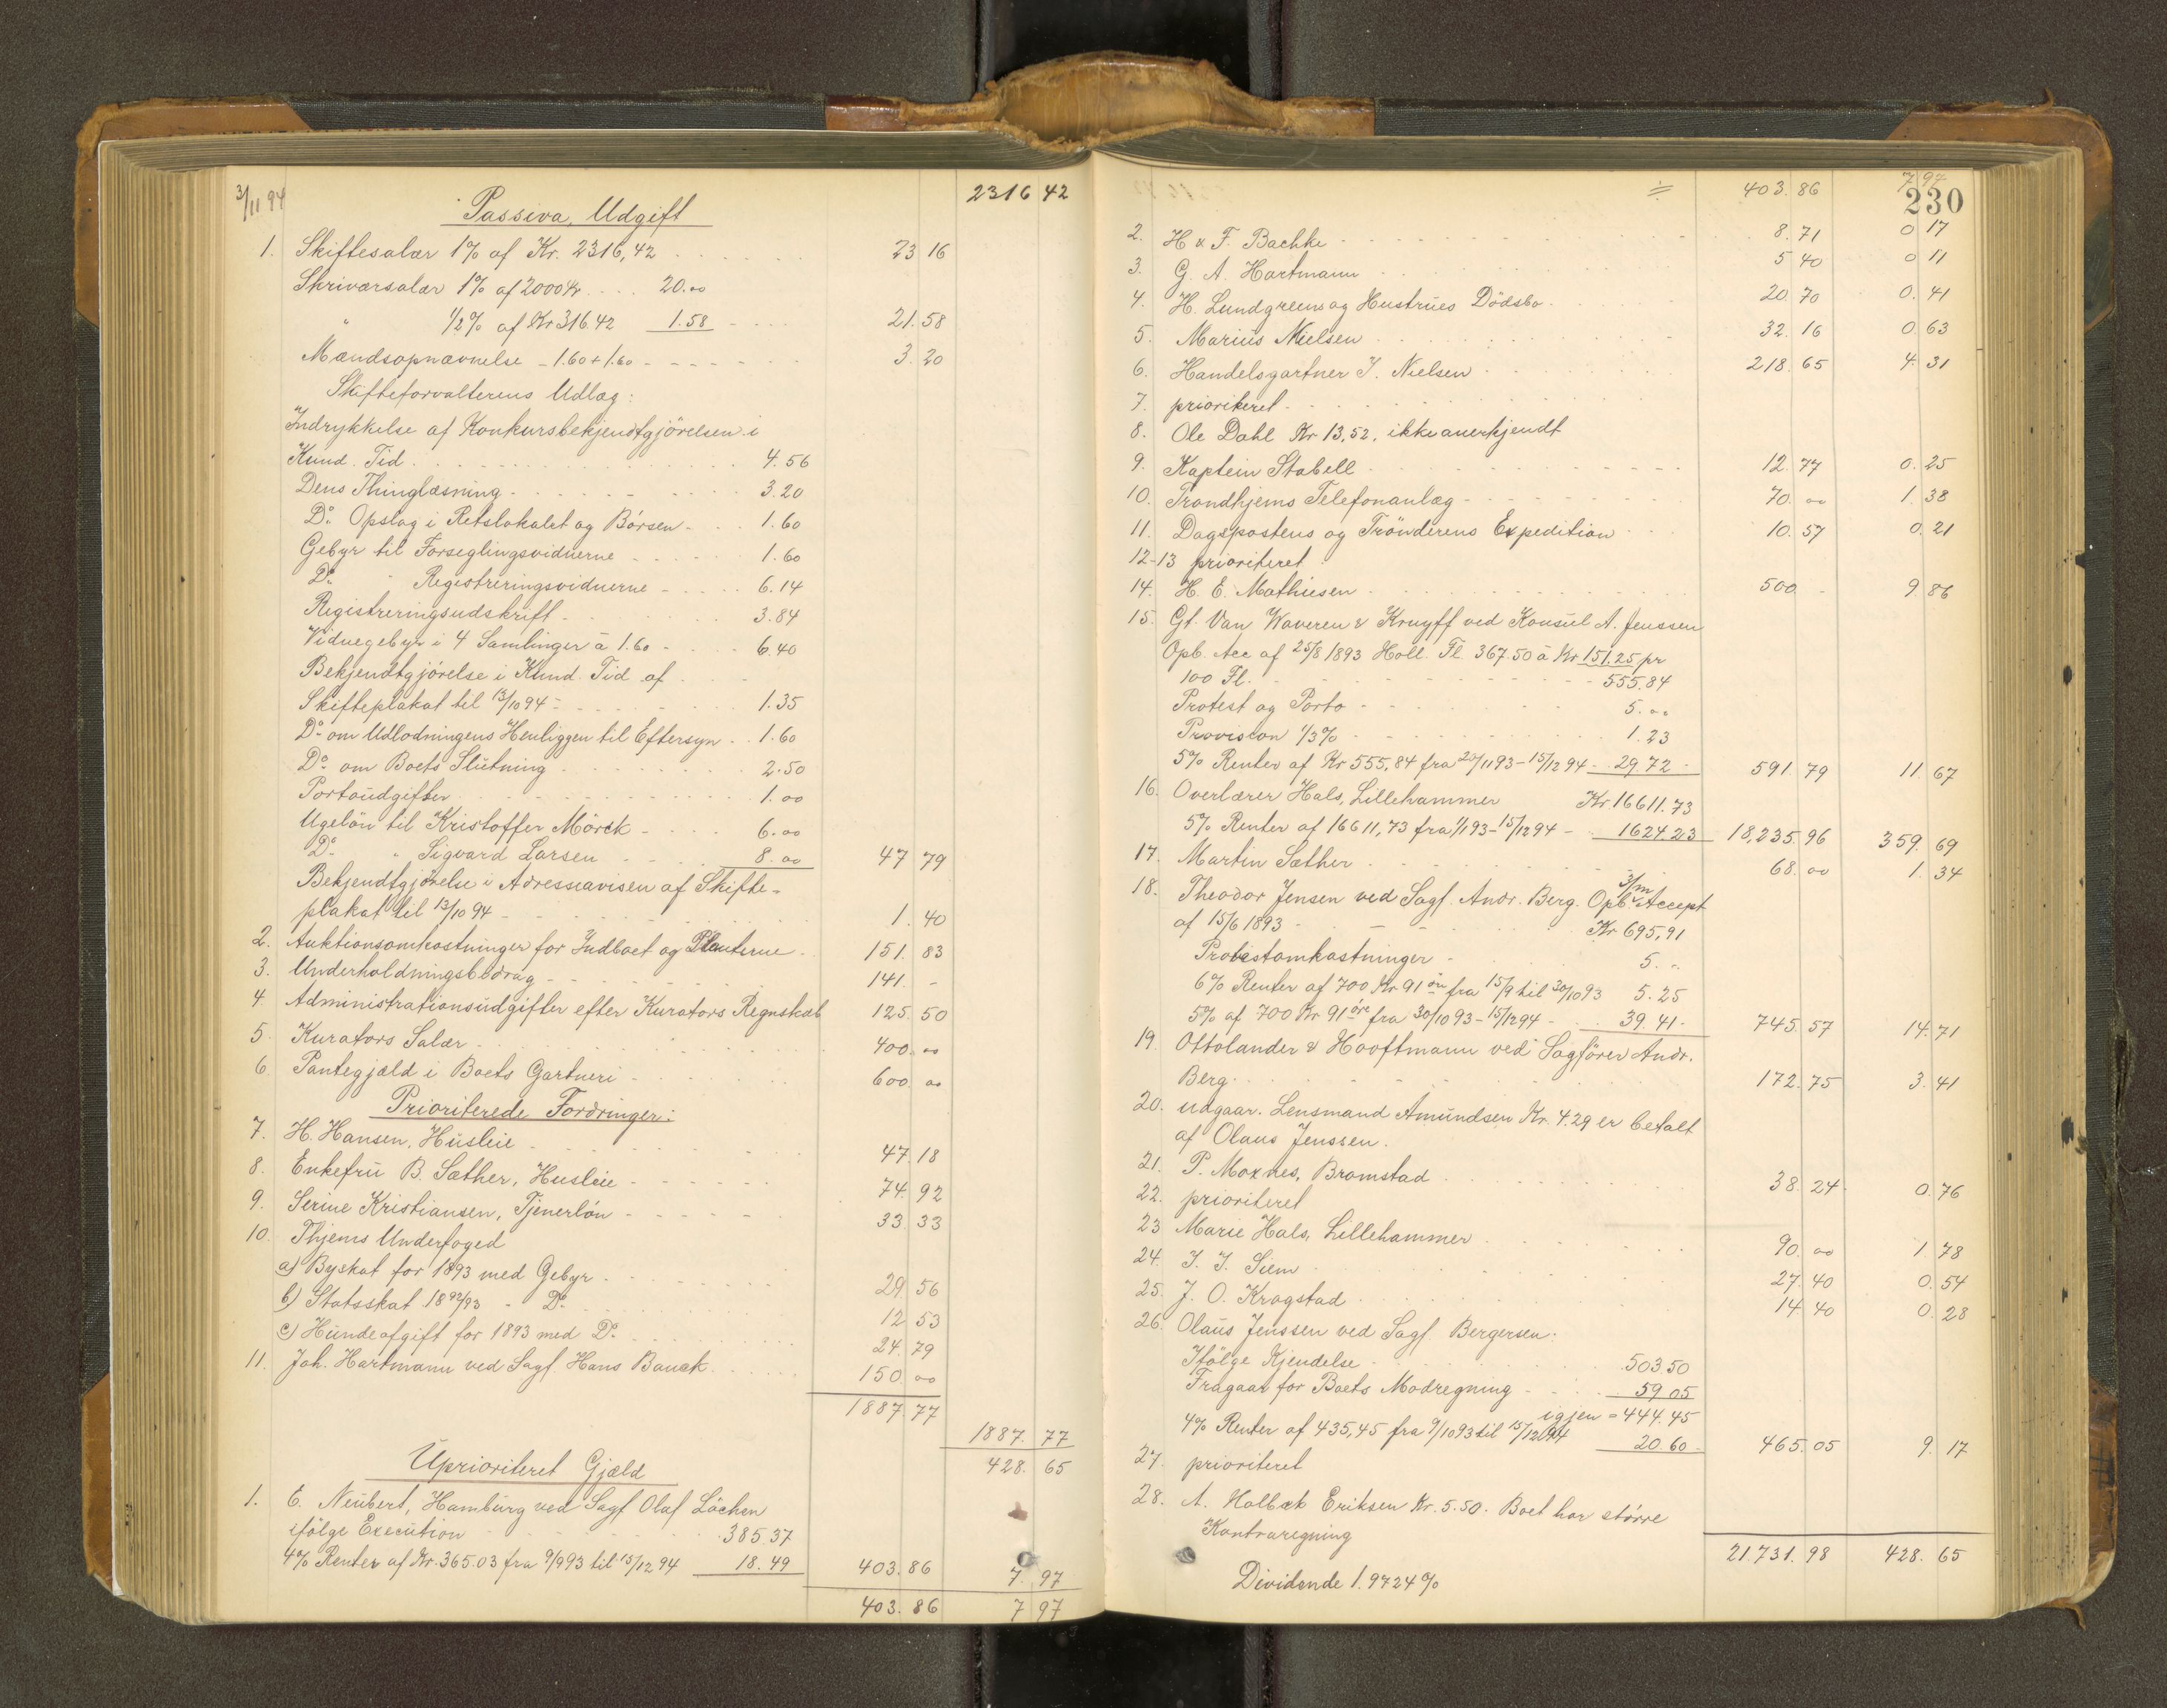 3/11 94 2316 42
Passiva, Udgift
1. Skiftesalær 1% af Kr. 2316,42 23 16
Skriversalær 1% af 2000 Kr 20.00
" 1/2% af Kr 316.42 1.58 21.58
Mændsopnævnelse - 1.60 + 1.60 3.20
Skifteforvalterens Udlæg:
Indrykkelse af Konkursbekjendtgjörelsen i
Kund. Tid. 4.56
Dens Thinglæsning 3.20
Do. Opslag i Retslokalet og Börsen 1.60
Gebyr til Forseglingsvidnerne 1.60
Do. " Registreringsvidnerne 6.14
Registreringsudskrift 3.84
Vidnegebyr i 4 Samlinger à 1.60 6.40
Bekjendtgjörelse i Kund. Tid. af
Skifteplakat til 13/10 94 1.35
Do. om Udlodningens Henliggen til Eftersyn 1.60
Do. om Boets Slutning 2.50
Portoudgifter 1.00
Ugelön til Kristoffer Mörck 6.00
Do. " Sigvard Larsen 8.00 47 79
Bekjendtgjörelse i Adresseavisen af Skifte-
plakat til 13/10 94 1.40
2. Auktionsomkostninger for Indboet og Planterne 151.83
3. Underholdningsbidrag 141. -
4 Administrationsudgifter efter Kurators Regnskab 125.50
5 Kurators Salær 400.00
6 Pantegjæld i Boets Gartneri 600.00
Prioriterede Fordringer:
7. H. Hansen, Husleie 47.18
8. Enkefru B. Sæther, Husleie 74.92
9. Serine Kristiansen, Tjenerlön 33 33
10. Thjems Underfoged
a) Byskat for 1893 med Gebyr 29 56
b) Statsskat 1892/93 - Do. 12 53
c) Hundeafgift for 1893 med Do. 24.79
11. Joh. Hartmann ved Sagf. Hans Bauck 150.00
1887.77
1887.77
428.65
Uprioriteret Gjæld
1. E. Neubert, Hamburg ved Sagf. Olaf Löchen
ifölge Execution 385.37
4% Renter af Kr. 365.03 fra 9/9 93 til 15/12 94 18.49 403.86 7.97
403.86 7 97
÷ 403.86 7.97
230
2. H & F. Bachke 8.71 0 17
3. G. A. Hartmann 5 40 0 11
4. H. Lundgreens og Hustrues Dödsbo 20.70 0.41
5. Marius Nielsen 32.16 0.63
6. Handelsgartner J. Nielsen 218.65 4.31
7. prioriteret
8. Ole Dahl Kr 13,52, ikke anerkjendt
9. Kaptein Stabell 12.77 0.25
10. Trondhjems Telefonanlæg 70.00 1.38
11. Dagspostens og Trönderens Expedition 10.57 0.21
12-13 prioriteret
14. H. E. Mathiesen 500 - 9.86
15. Gt. Van Waveren & Kruyff ved Konsul A. Jenssen
Opb. Acc af 25/8 1893 Holl. Fl. 367.50 à Kr 151.25 pr
100 Fl. 555.84
Protest og Porto 5.00
Provision 1/3% 1.23
5% Renter af Kr 555,84 fra 20/11 93 - 15/12 94 29.72 591.79 11.67
16. Overlærer Hals, Lillehammer Kr 16611.73
5% Renter af 16611,73 fra 1/1 93 - 15/12 94 1624.23 18,235.96 359.69
17. Martin Sæther 68.00 1.34
18. Theodor Jensen ved Sagf. Andr. Berg. Opb. 3/m Accept
af 15/6 1893 Kr 695,91
Protestomkostninger 5. -
6% Renter af 700 Kr 91 öre fra 15/9 til 30/10 93 5.25
5% af 700 Kr 91 öre fra 30/10 93 - 15/12 94 39.41 745.57 14.71
19. Ottolander & Hooftmann ved Sagförer Andr.
Berg. 172.75 3.41
20. udgaar. Lensmand Amundsen Kr. 4.29 er betalt
af Olaus Jenssen.
21. P. Moxnes, Bromstad 38.24 0.76
22. prioriteret
23 Marie Hals, Lillehammer 90.00 1 78
24. J. J. Siem 27.40 0.54
25. J. O. Krogstad 14 40 0.28
26. Olaus Jenssen ved Sagf. Bergersen.
Ifölge Kjendelse 503 50
Fragaar for Boets Modregning 59 05
igjen = 444.45
4% Renter af 435,45 fra 9/10 93 til 15/12 94 20.60 465.05 9.17
27. prioriteret
28. A. Holbæk Eriksen Kr. 5.50. Boet har större
Kontraregning
21.731.98 428.65
Dividende 1.9724%